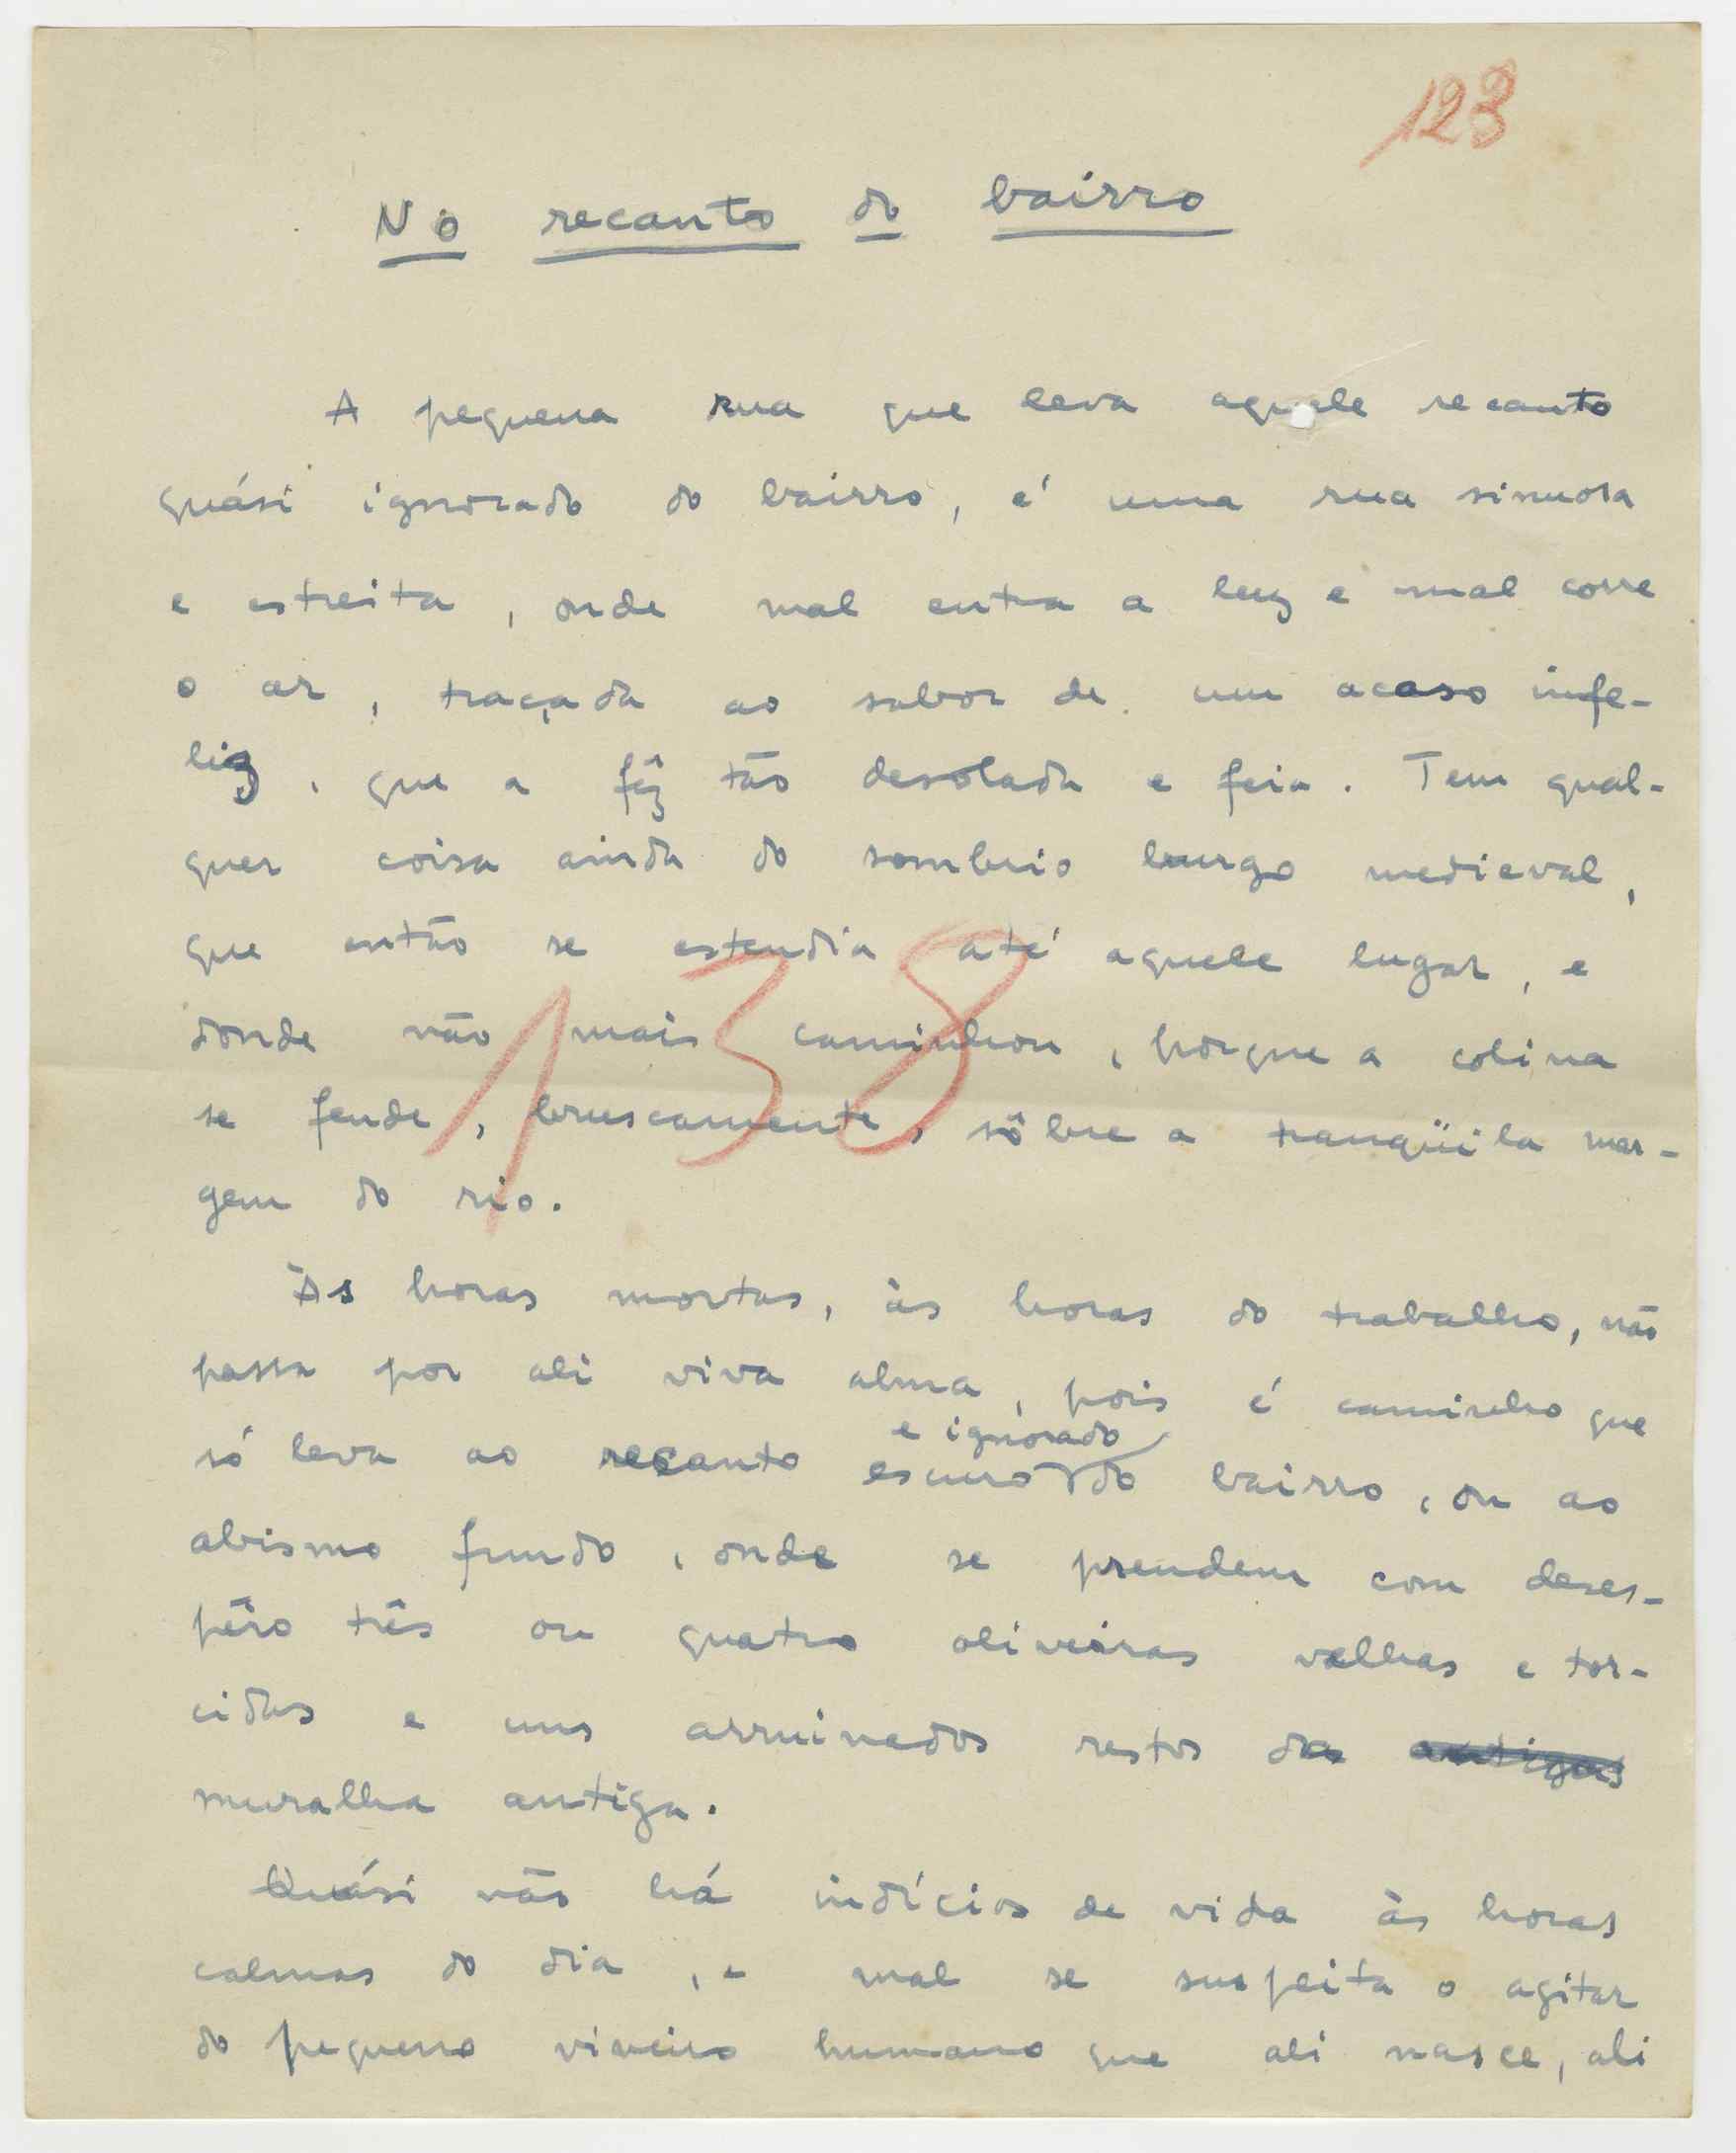 123
No recanto do bairro
A pequena rua que leva aquele recanto
quási ignorado do bairro, é uma rua sinuosa
e estreita, onde mal entra a luz e mal corre
o ar, traçada ao sabor de um acaso infe-
liz, que a fêz tão desolada e feia. Tem qual-
quer coisa ainda do sombrio burgo medieval,
que então se estendia até aquele lugar, e
donde não mais caminhou, porque a colina
se fende, bruscamente, sôbre a tranqüila mar-
gem do rio.
138
Às horas mortas, às horas do trabalho, não
passa por ali viva alma, pois é caminho que
e ignorado
só leva ao recanto escuro do bairro, ou ao
abismo fundo, onde se prendem com deses-
pêro três ou quatro oliveiras velhas e tor-
cidas e uns arruinados restos da antigas
muralha antiga.
Quási não há indícios de vida às horas
calmas do dia, e mal se suspeita o agitar
do pequeno viveiro humano que ali nasce, ali